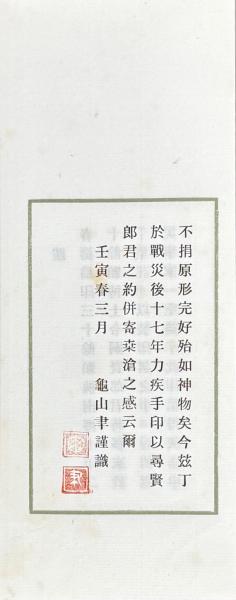 不捐原形完好殆如神物矣今玆丁
於戰災後十七年力疾手印以尋賢
郎君之約併寄桒滄之感云爾
壬寅春三月　龜山聿謹識